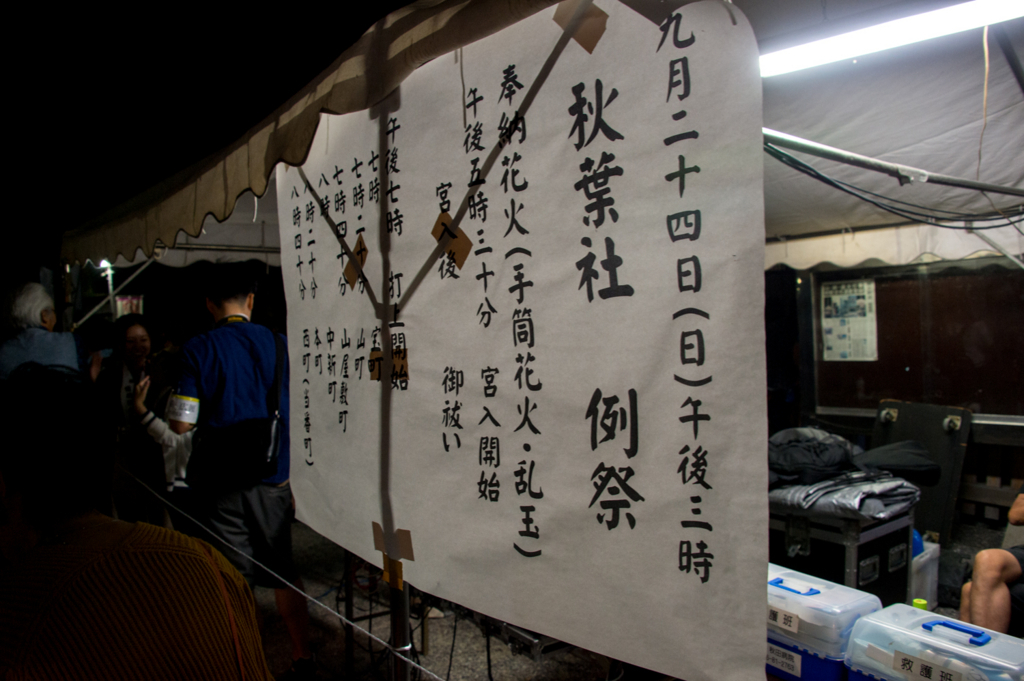 九月二十四日(日)午後三時
秋葉社 例祭
奉納花火(手筒花火・乱玉)
午後五時三十分 宮入開始
宮入後 御祓い
午後七時 打上開始
七時 宝町
七時二十分 山町
七時四十分 山屋敷町
八時 中新町
八時二十分 本町
八時四十分 西町(当番町)
救護班
救護班